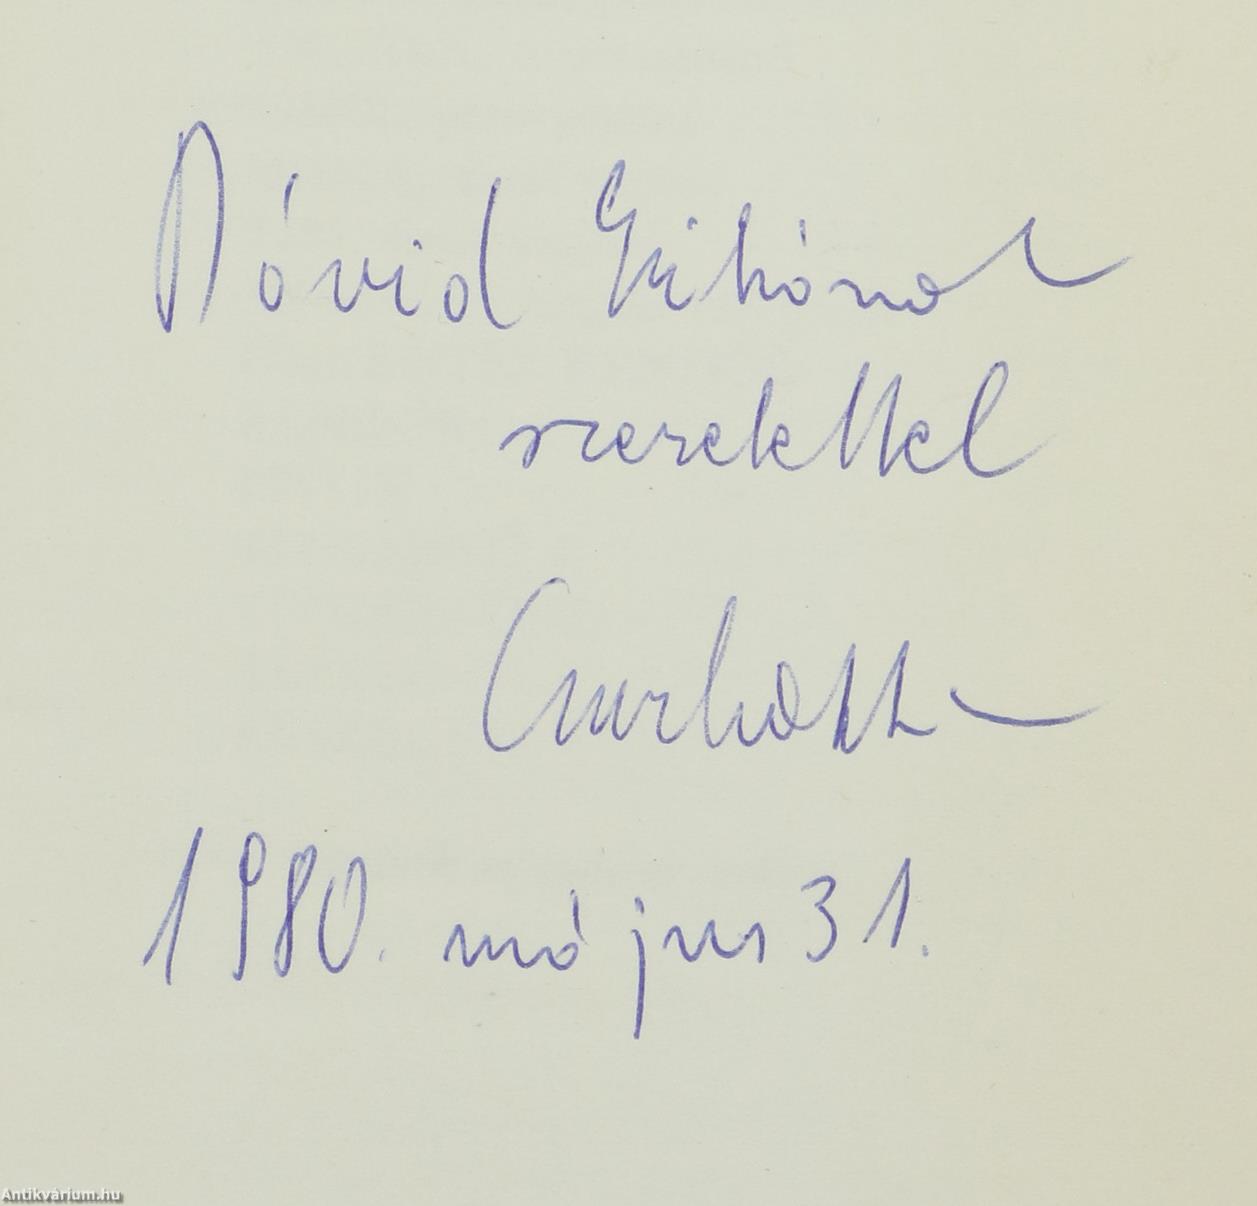 Dávid Gyikának
szeretettel
Csurka
1980. május 31.
Antikvárium.hu